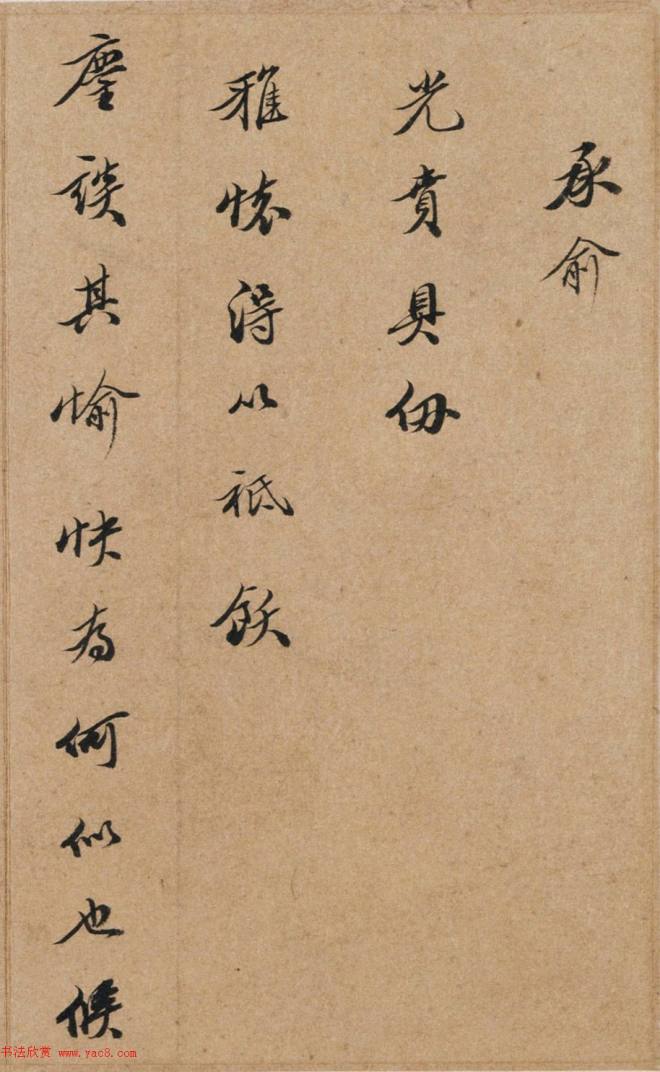 承俞
光賁具仞
雅懷得以祗飫
麈談其愉快為何似也候
书法欣赏 www.yac8.com